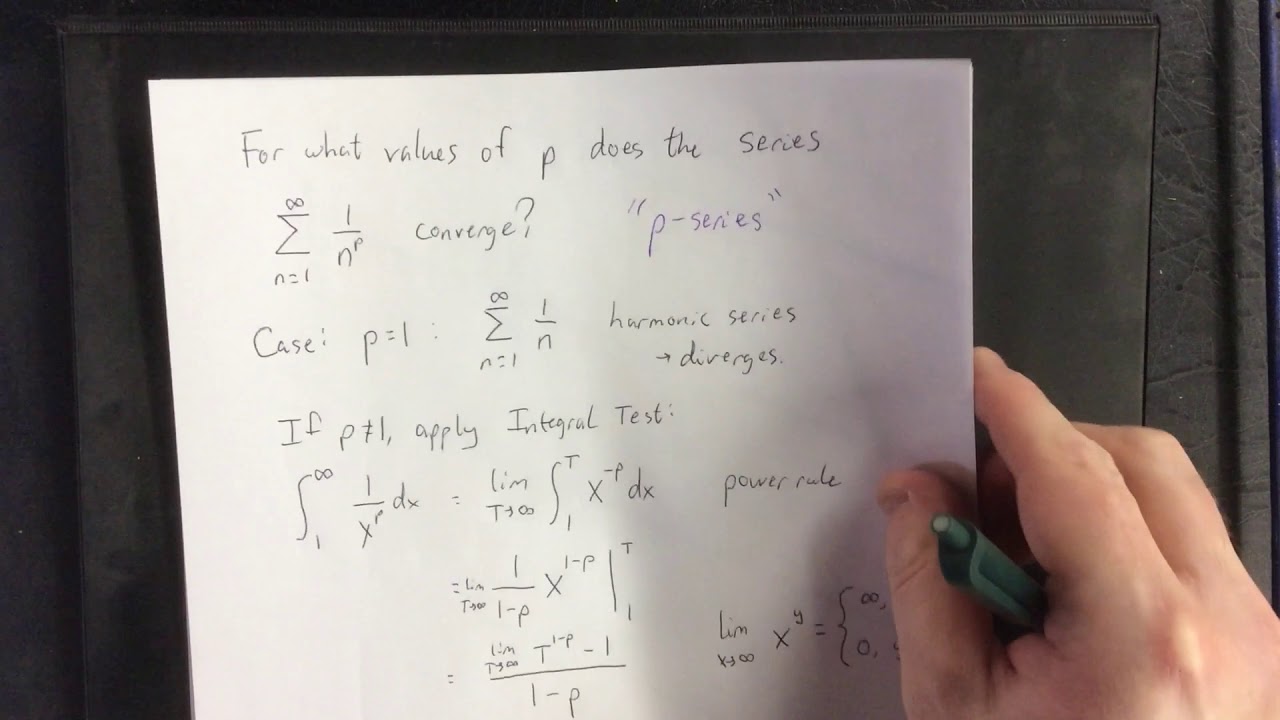 For what values of p does the series
∞ ∑ n=1 1/n^p converge? "p-series"
Case: p=1 : ∞ ∑ n=1 1/n harmonic series
→ diverges.
If p≠1, apply Integral Test:
∫₁^∞ 1/x^p dx = lim T→∞ ∫₁^T x^-p dx power rule
= lim T→∞ 1/1-p x^1-p |₁^T
lim x→∞ x^y = { ∞,
0,
= lim T→∞ T^1-p - 1 / 1-p